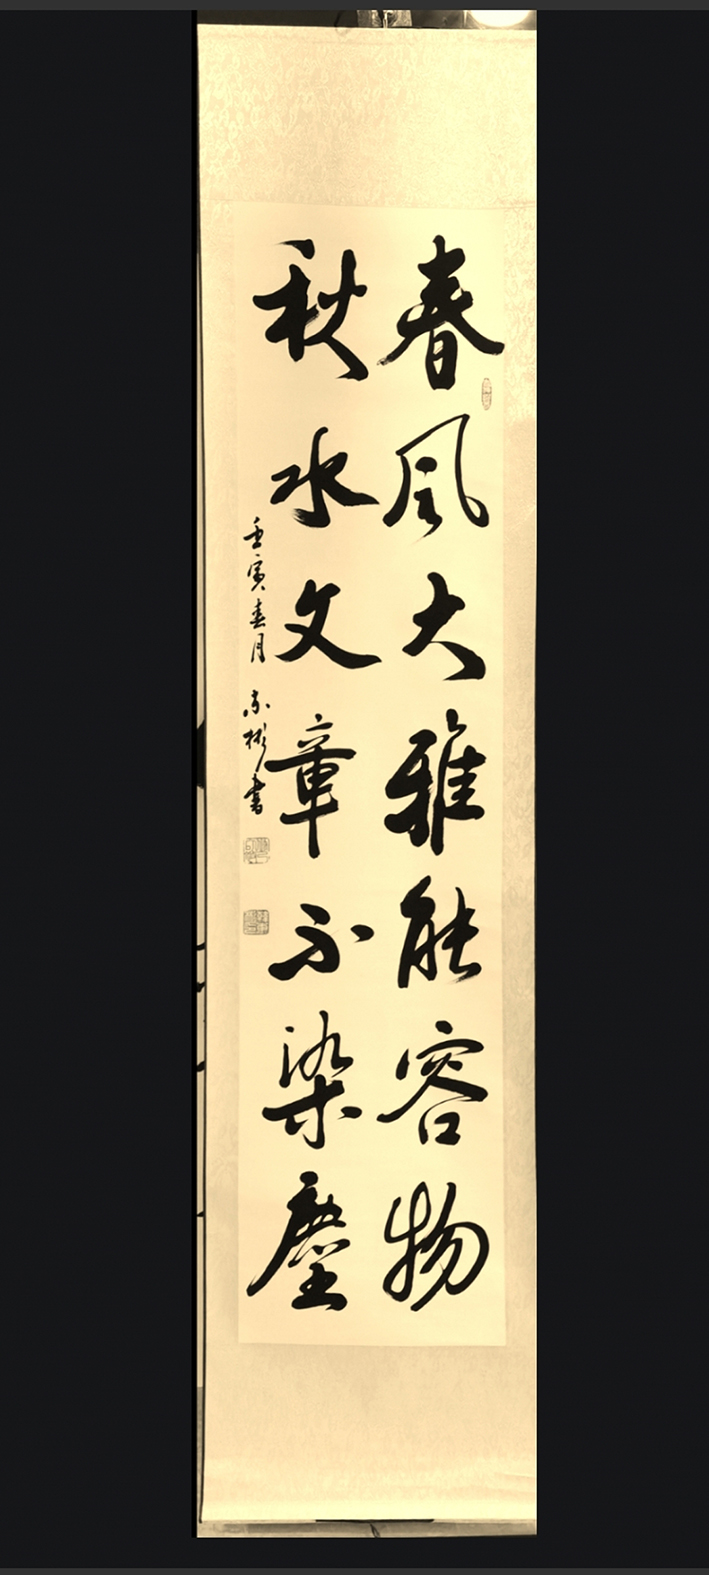 春風大雅能容物
秋水文章不染塵
壬寅春月
彬書